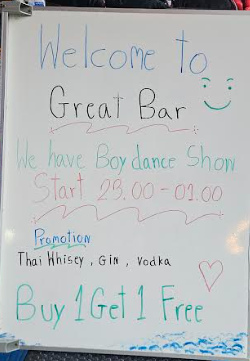 Welcome to
Great Bar
We have Boy dance Show
Start 23.00-01.00
Promotion
Thai Whisey, Gin, Vodka
Buy 1 Get 1 Free